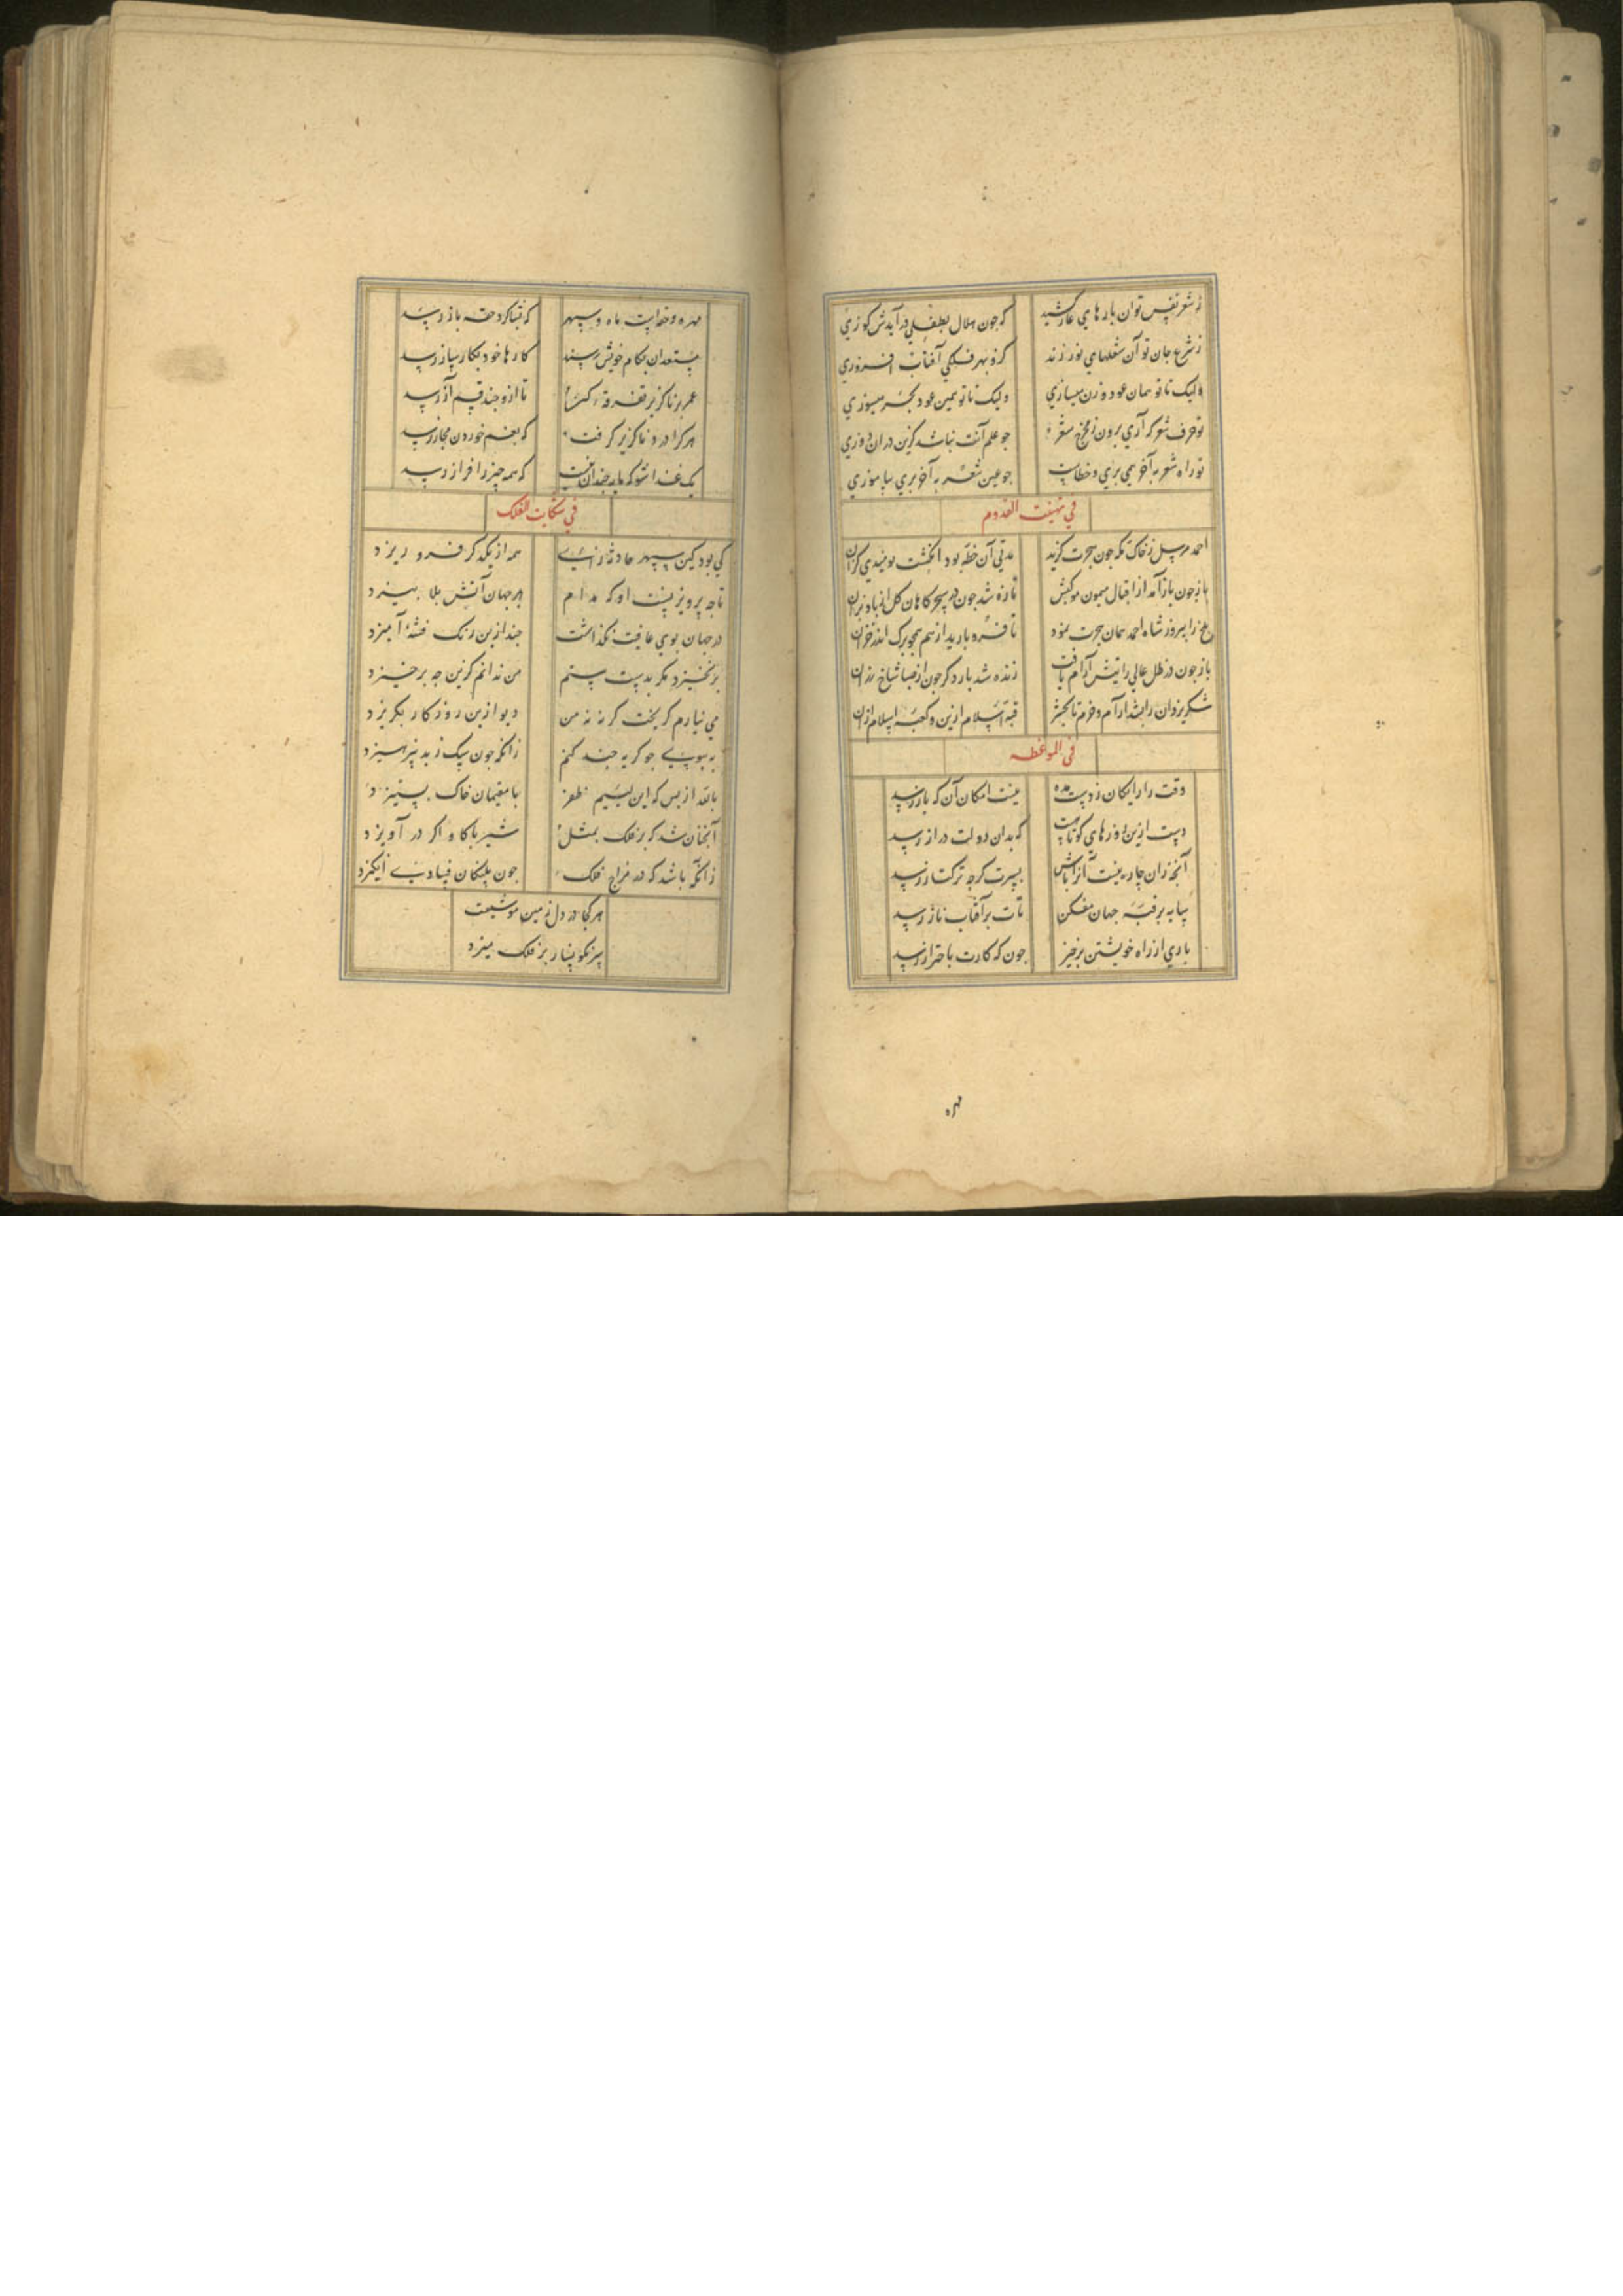 ز شعر نفس توان بارهای عار کشید که جون هلال بطفلی در آیدش کوزی
ز شرع جان تو آن شعلهای نور زند کزو بهر فلکی آفتاب افروزی
ولیک تا تو همان عود وزن میسازی ولیک تا تو همین عود بحر میسوزی
تو حرف شعر که آری برون ز مخرج جو علم آنت نباشد کزین در ان دوزی
تو راه شعر به آخر همی بری و خطاست جو عین شعر به آخر بری بیاموزی
في تهنیت القدوم
احمد مرسل ز خاک مکه جون هجرت کزید مدتی آن خطه بود انکشت نومیدی کزان
باز جون باز آمد از اقبال میمون موکبش تازه شد جون در سحرکاهان کل از باد بزان
بلخ را پیروز شاه احمد همان هجرت نمود تا فرو بارید از هم همجو برک اندر خزان
باز جون در ظل عالی رایتش آرام یافت زنده شد بار دکر جون از صبا شاخ رزان
شکر یزدان را بشد آرام و خرم تا بحشر قبه اسلام ازین و کعبه اسلام ازان
في الموعظه
وقت را رایکان ز دست مده نیست امکان آن که باز رسد
دست ازین روزهای کوتاهت که بدان دولت دراز رسد
آنجه زان جاره نیست آنرا باش بسرت کرجه ترکتاز رسد
سایه بر قبه جهان مفکن تات بر آفتاب ناز رسد
باری از راه خویشتن برخیز جون که کارت باحتراز رسد
مهره
مهره و حقه است ماه و سپهر که نیاکرد حقه باز رسد
مستعدان بکام خویش رسند کارها خود بکارساز رسد
عمر بر ناکزیر تفرقه کن تا ازو جند قسم آز رسد
هر کرا درد ناکزیر کرفت که بغم خوردن مجاز رسد
یک غذا شو که مایه جندان نیست که همه جیز را فراز رسد
في شکایت الفلک
کی بود کین سپهر حادثه زای همه از یکدکر فرو ریزد
تا جه پرویزنست او که مدام بر جهان آتش بلا بیزد
در جهان بوی عافیت نکذاشت جند ازین رنک فتنه آمیزد
برنخیزد مکر بدست ستم من ندانم کزین جه برخیزد
می نیارم کریخت کر نه نه من دیو ازین روزکار بکریزد
به بیوسی جو کربه جند کنم زانکه جون سک ز بد نپرهیزد
بالله از بس که این لئیم ظفر با مقیمان خاک بستیزد
آنجنان شد که بر فلک بمثل شیر با کاو اکر در آویزد
زانکه باشد که در مزاج فلک جون پلنکان فسادی انکیزد
هر کجا در دل زمین موشیست
سر نکونسار بر فلک میزد